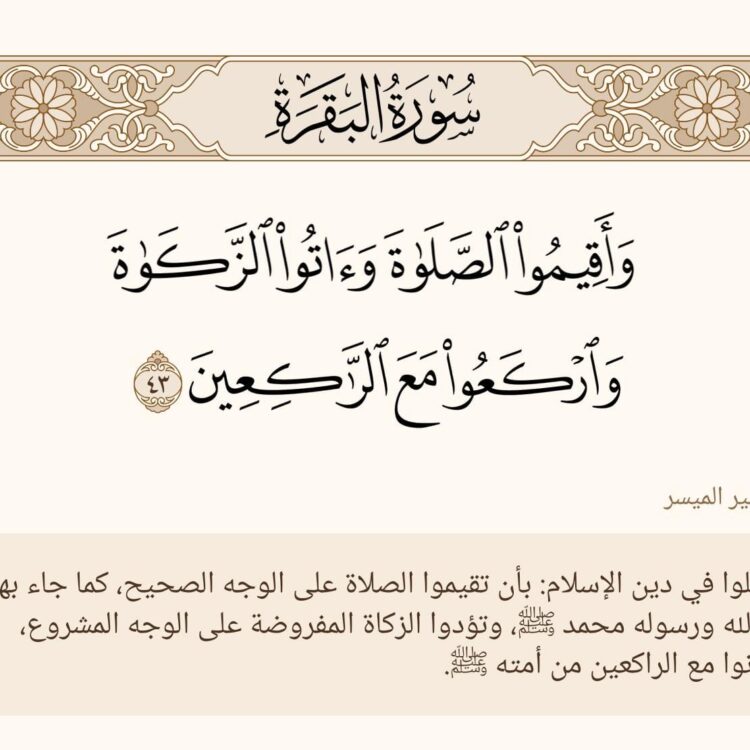 سُورَةُ البَقَرَةِ
وَأَقِيمُوا۟ ٱلصَّلَوٰةَ وَءَاتُوا۟ ٱلزَّكَوٰةَ
وَٱرۡكَعُوا۟ مَعَ ٱلرَّٰكِعِينَ ٤٣
الميسر
في دين الإسلام: بأن تقيموا الصلاة على الوجه الصحيح، كما جاء
ورسوله محمد ﷺ، وتؤدوا الزكاة المفروضة على الوجه المشروع،
مع الراكعين من أمته ﷺ.